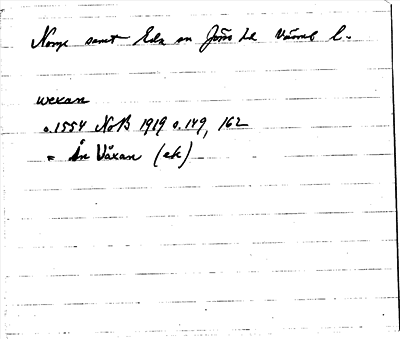 Norge samt Eda sn Jösse hd Värml l.
wexan
c. 1554 NoB 1919 s. 149, 162
= Ån Växan (ek)